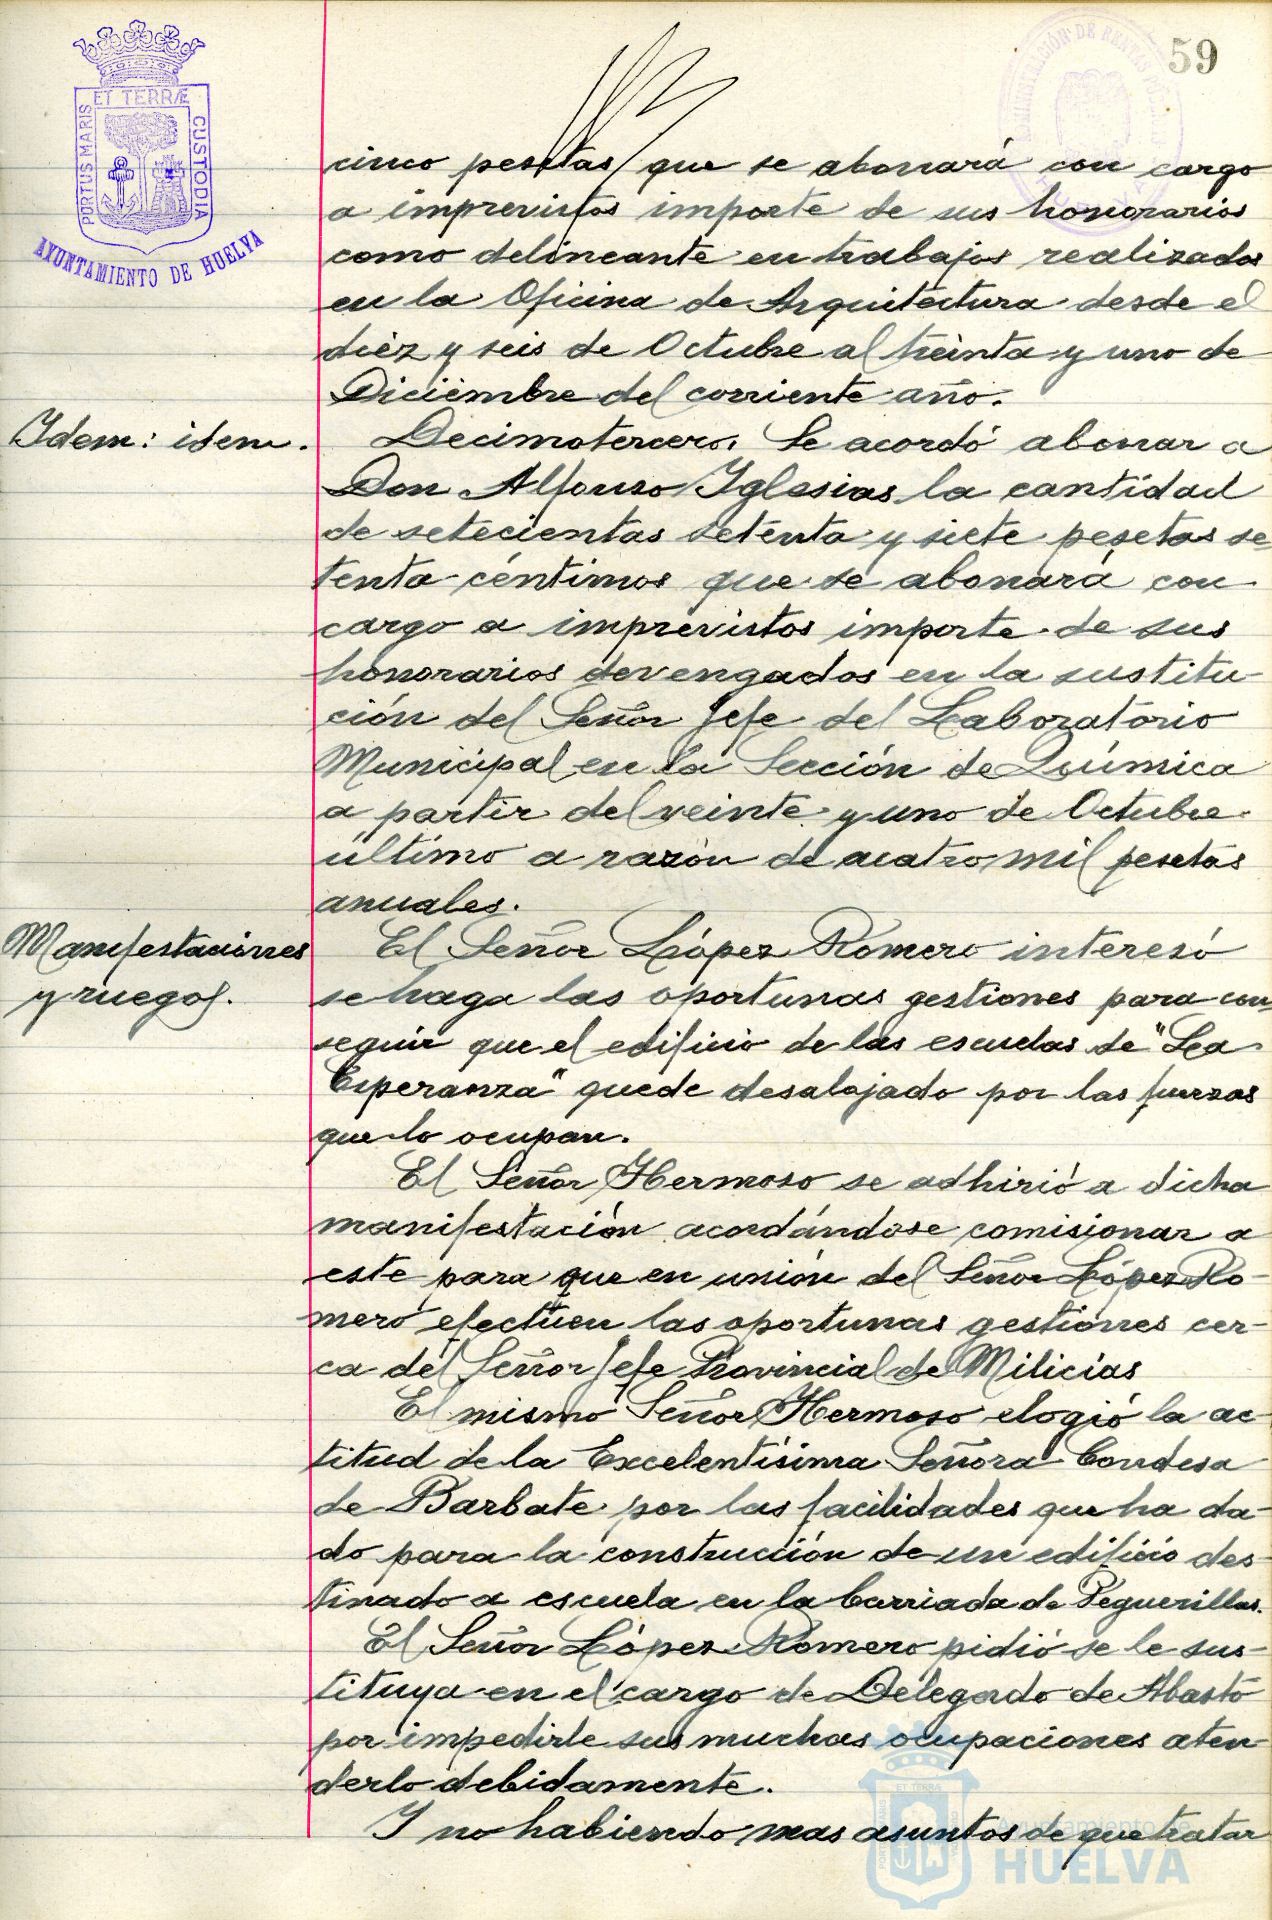 59
ET TERRÆ
PORTUS MARIS
CUSTODIA
AYUNTAMIENTO DE HUELVA
cinco pesetas que se abonará con cargo
a imprevistos importe de sus honorarios
como delineante en trabajos realizados
en la Oficina de Arquitectura desde el
diez y seis de Octubre al treinta y uno de
Diciembre del corriente año.
Idem: idem.
Decimotercero. Se acordó abonar a
Don Alfonso Iglesias la cantidad
de setecientas setenta y siete pesetas se
tenta céntimos que se abonará con
cargo a imprevistos importe de sus
honorarios devengados en la sustitu-
ción del Señor Jefe del Laboratorio
Municipal en la Sección de Química
a partir del veinte y uno de Octubre
último a razón de cuatro mil pesetas
anuales.
Manifestaciones
y ruegos.
El Señor López Romero interesó
se haga las oportunas gestiones para con
seguir que el edificio de las escuelas de "La
Esperanza" quede desalojado por las fuerzas
que lo ocupan.
El Señor Hermoso se adhirió a dicha
manifestación acordándose comisionar a
este para que en unión del Señor López Ro-
mero efectúen las oportunas gestiones cer-
ca del Señor Jefe Provincial de Milicias
El mismo Señor Hermoso elogió la ac-
titud de la Excelentísima Señora Condesa
de Barbate por las facilidades que ha da-
do para la construcción de un edificio des-
tinado a escuela en la barriada de Peguerillas.
El Señor López Romero pidió se le sus-
tituya en el cargo de Delegado de Abasto
por impedirle sus muchas ocupaciones aten
derlo debidamente.
Y no habiendo mas asuntos de que tratar
Ayuntamiento de
HUELVA